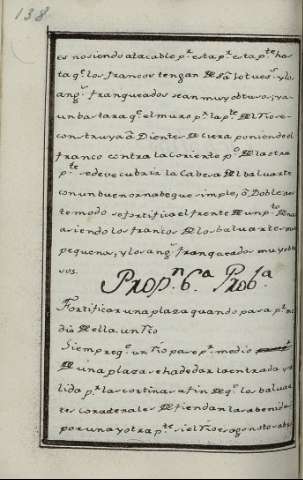 138
es no siendo atacable p.r esta p.r esta p.te has
ta q.e los francos tengan y lo
ang.s franqueados sean muy obtusos; ya
un bastara q.e el muro p.r la p.te del Rio se
construya â Diente de cierra poniendo el
franco contra la Coriente p.o de la otra
p.te se deve cubrir la Cabesa del baluarte
con un buen ornabeque simple, ô Doble; es
te modo se fortifica el frente de un p.to
asiendo los francos de los baluartes mui
pequenos; y los ang.s franqueados muy obtu
sos.
Prop.n 6.a Prob.a
Fortificar una plaza quando pasa p.r me
dio de ella un Rio
Siempre q.e un Rio pase p.r medio
de una plaza se ha de dar la entrada y sa
lida p.r las cortinas a fin de q.e los balua
tes colaterales defiendan las abenidas
por una y otra p.te si el Rio es agosto abri